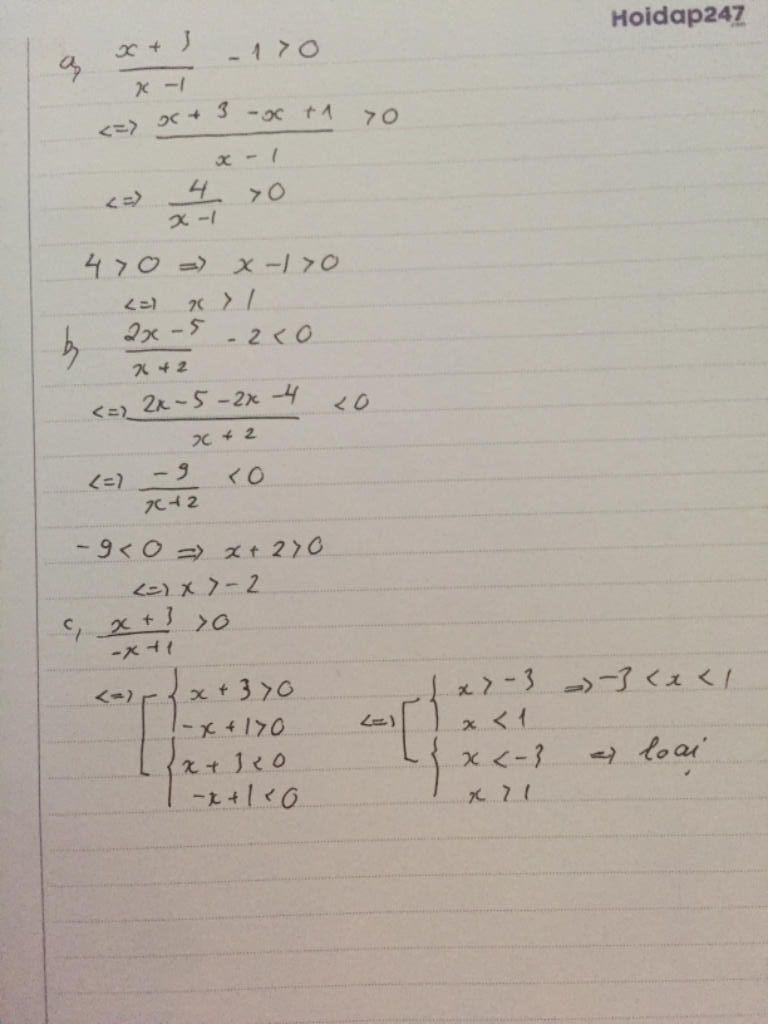 Hoidap247
.com
a, x + 3 / x - 1 - 1 > 0
<=> x + 3 - x + 1 / x - 1 > 0
<=> 4 / x - 1 > 0
4 > 0 => x - 1 > 0
<=> x > 1
b, 2x - 5 / x + 2 - 2 < 0
<=> 2x - 5 - 2x - 4 / x + 2 < 0
<=> - 9 / x + 2 < 0
- 9 < 0 => x + 2 > 0
<=> x > - 2
c, x + 3 / -x + 1 > 0
<=> [ { x + 3 > 0 <=> [ { x > - 3 => - 3 < x < 1
-x + 1 > 0 x < 1
{ x + 3 < 0 { x < - 3 => loại
-x + 1 < 0 x > 1